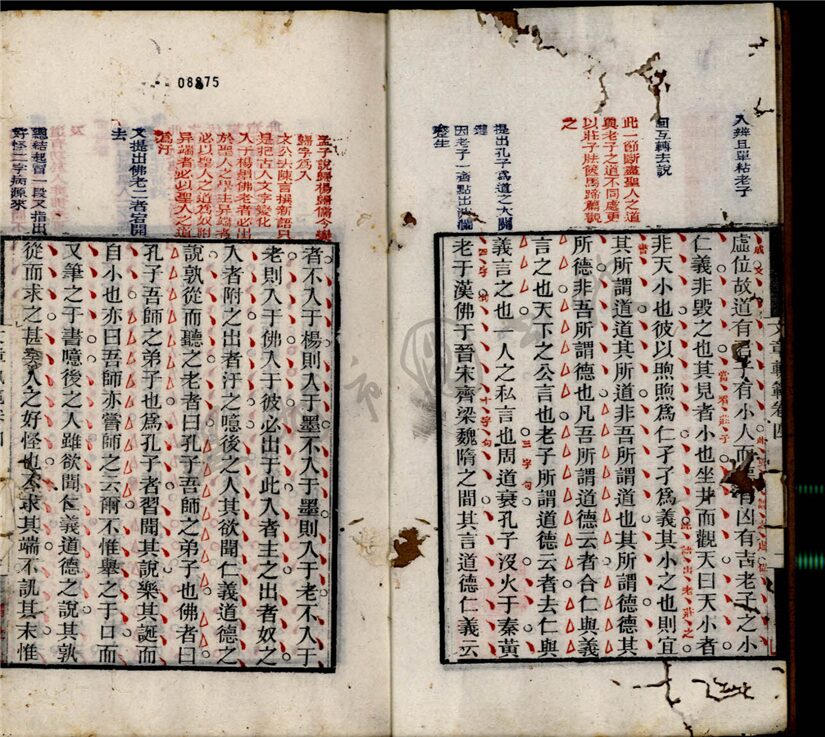 08875
入辨且單粘老子
回互轉去說
此一節斷盡聖人之道
與老子之道不同處更
以莊子胠篋馬蹄篇觀
之
提出孔子為道之大關
鍵
因老子一齊點出佛
虛位故道有君子有小人而德有凶有吉老子之小
仁義非毀之也其見者小也坐井而觀天曰天小者
非天小也彼以煦煦為仁孑孑為義其小之也則宜
其所謂道道其所道非吾所謂道也其所謂德德其
所德非吾所謂德也凡吾所謂道德云者合仁與義
言之也天下之公言也老子所謂道德云者去仁與
義言之也一人之私言也周道衰孔子沒火于秦黃
老于漢佛于晉宋齊梁魏隋之間其言道德仁義云
文章軌範卷四
孟子說歸楊歸儒今變
歸字為入
文公去陳言撰新語只
是把古人文字變化
入于楊墨佛老者必出
於聖人之學主異端者
必以聖人之道為奴附
異端者必以聖人之道
為汙
又提出佛老二者宕開
去
總結起冒一段又指出
好怪二字病源來
者不入于楊則入于墨不入于墨則入于老不入于
老則入于佛入于彼必出于此入者主之出者奴之
入者附之出者汙之噫後之人其欲聞仁義道德之
說孰從而聽之老者曰孔子吾師之弟子也佛者曰
孔子吾師之弟子也為孔子者習聞其說樂其誕而
自小也亦曰吾師亦嘗師之云爾不惟舉之于口而
又筆之于書噫後之人雖欲聞仁義道德之說其孰
從而求之甚矣人之好怪也不求其端不訊其末惟